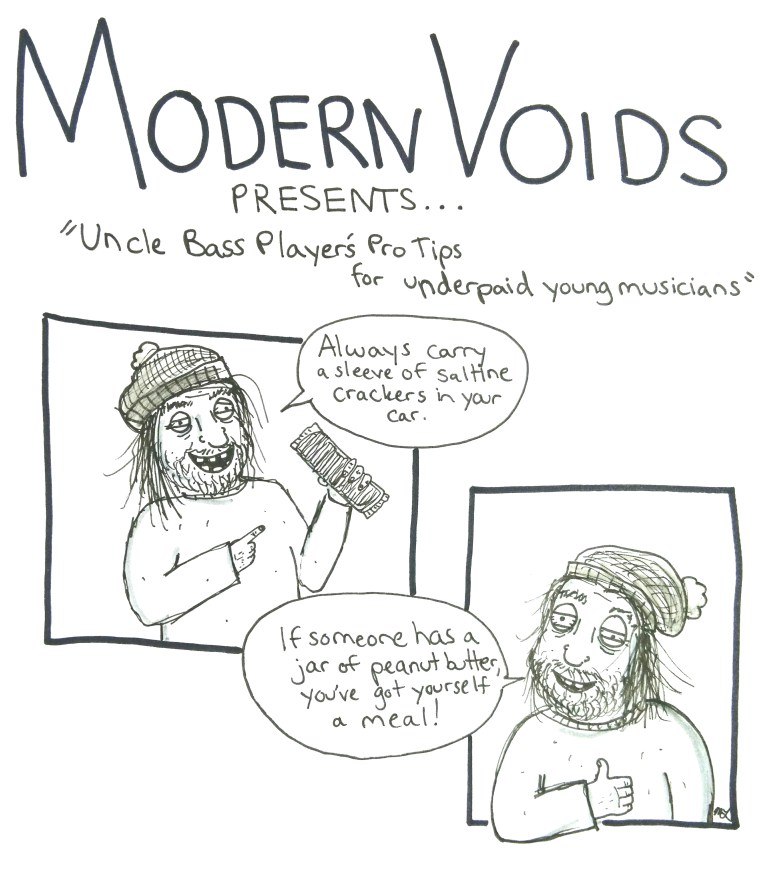 MODERN VOIDS
PRESENTS...
"Uncle Bass Player's Pro Tips
for underpaid young musicians"
Always carry
a sleeve of saltine
crackers in your
car.
If someone has a
jar of peanut butter,
you've got yourself
a meal!